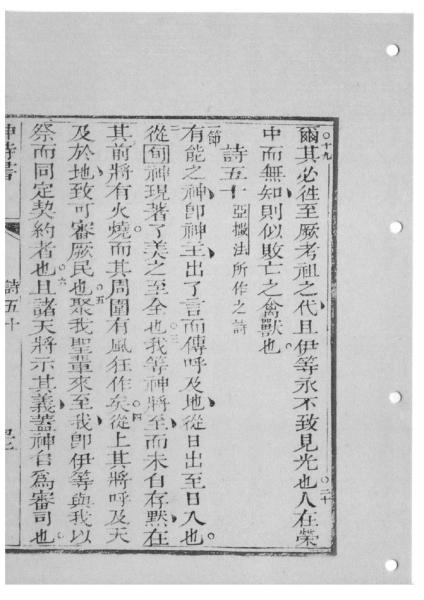 ○十九爾其必徃至厥考祖之代且伊等永不致見光也○二十人在榮
中而無知則似敗亡之禽獸也
詩五十 亞撒法所作之詩
一節有能之神卽神主出了言而傳呼及地從日出至日入也○
二從旬神現著了美之至全也○三我等神將至而未自存默在
其前將有火燒○而其周圍有風狂作矣○四從上其將呼及天
及於地致可審厥民也○五聚我聖輩來至我卽伊等與我以
祭而同定契約者也○六且諸天將示其義蓋神自爲審司也○
神詩書 詩五十